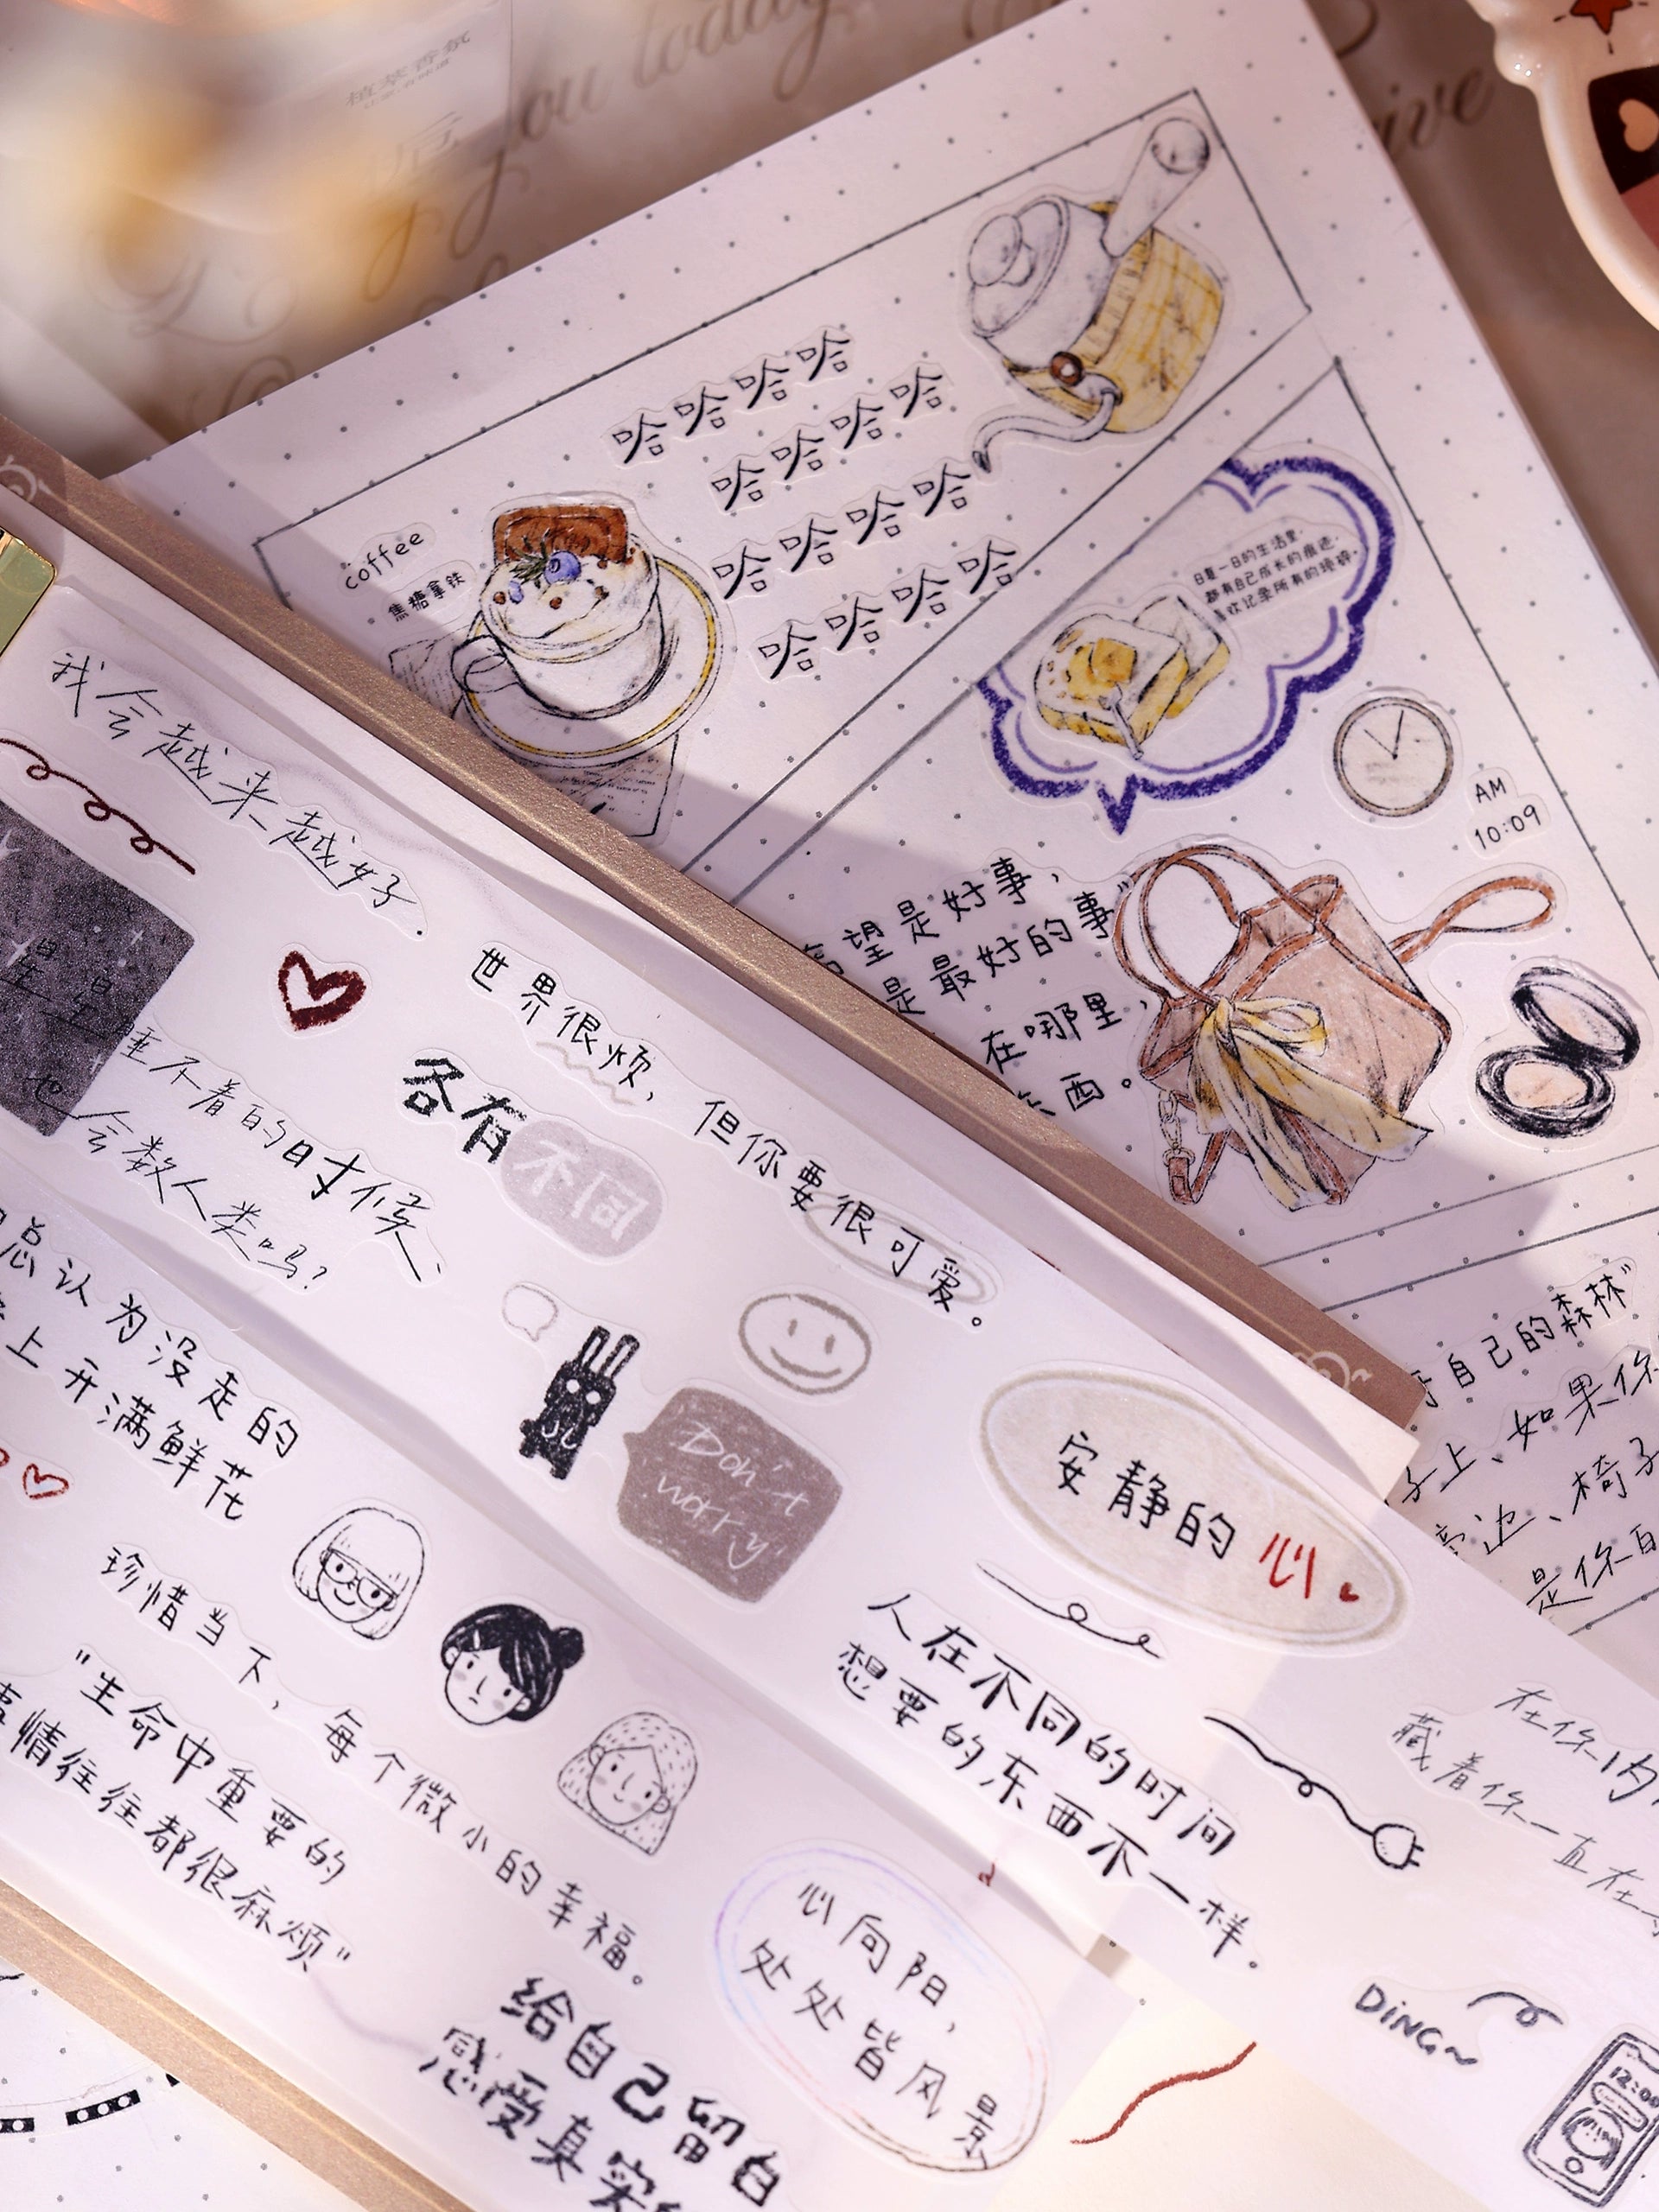 植萃香氛
you today
ive
哈哈哈哈
哈哈哈哈
哈哈哈哈
哈哈哈哈
coffee
焦糖拿铁
日复一日的生活里,
都有自己成长的痕迹,
喜欢记录所有的琐碎。
AM
10:09
望是好事,
是最好的事”
在哪里,
东西。
自己的森林”
子上、如果你
旁边、椅子
是你自
我会越来越好.
星星
睡不着的时候、
也会数人类吗?
世界很烦,但你要很可爱。
各有不同
总认为没走的
上开满鲜花
Don't
worry
安静的心
珍惜当下,每个微小的幸福。
人在不同的时间
想要的东西不一样。
在你内
藏着你一直在
“生命中重要的
事情往往都很麻烦”
心向阳,
处处皆风景
给自己留白
感受真实
DiNG~
12:00